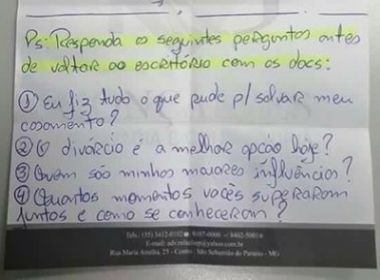 Ps: Responda as seguintes perguntas antes
de voltar ao escritório com os docs:
① Eu fiz tudo o que pude p/ salvar meu
casamento?
② O divórcio é a melhor opção hoje?
③ Quem são minhas maiores influências?
④ Quantos momentos vocês superaram
juntos e como se conheceram?
Rua Maria Amélia, 25 - Centro - São Sebastião do Paraíso - MG